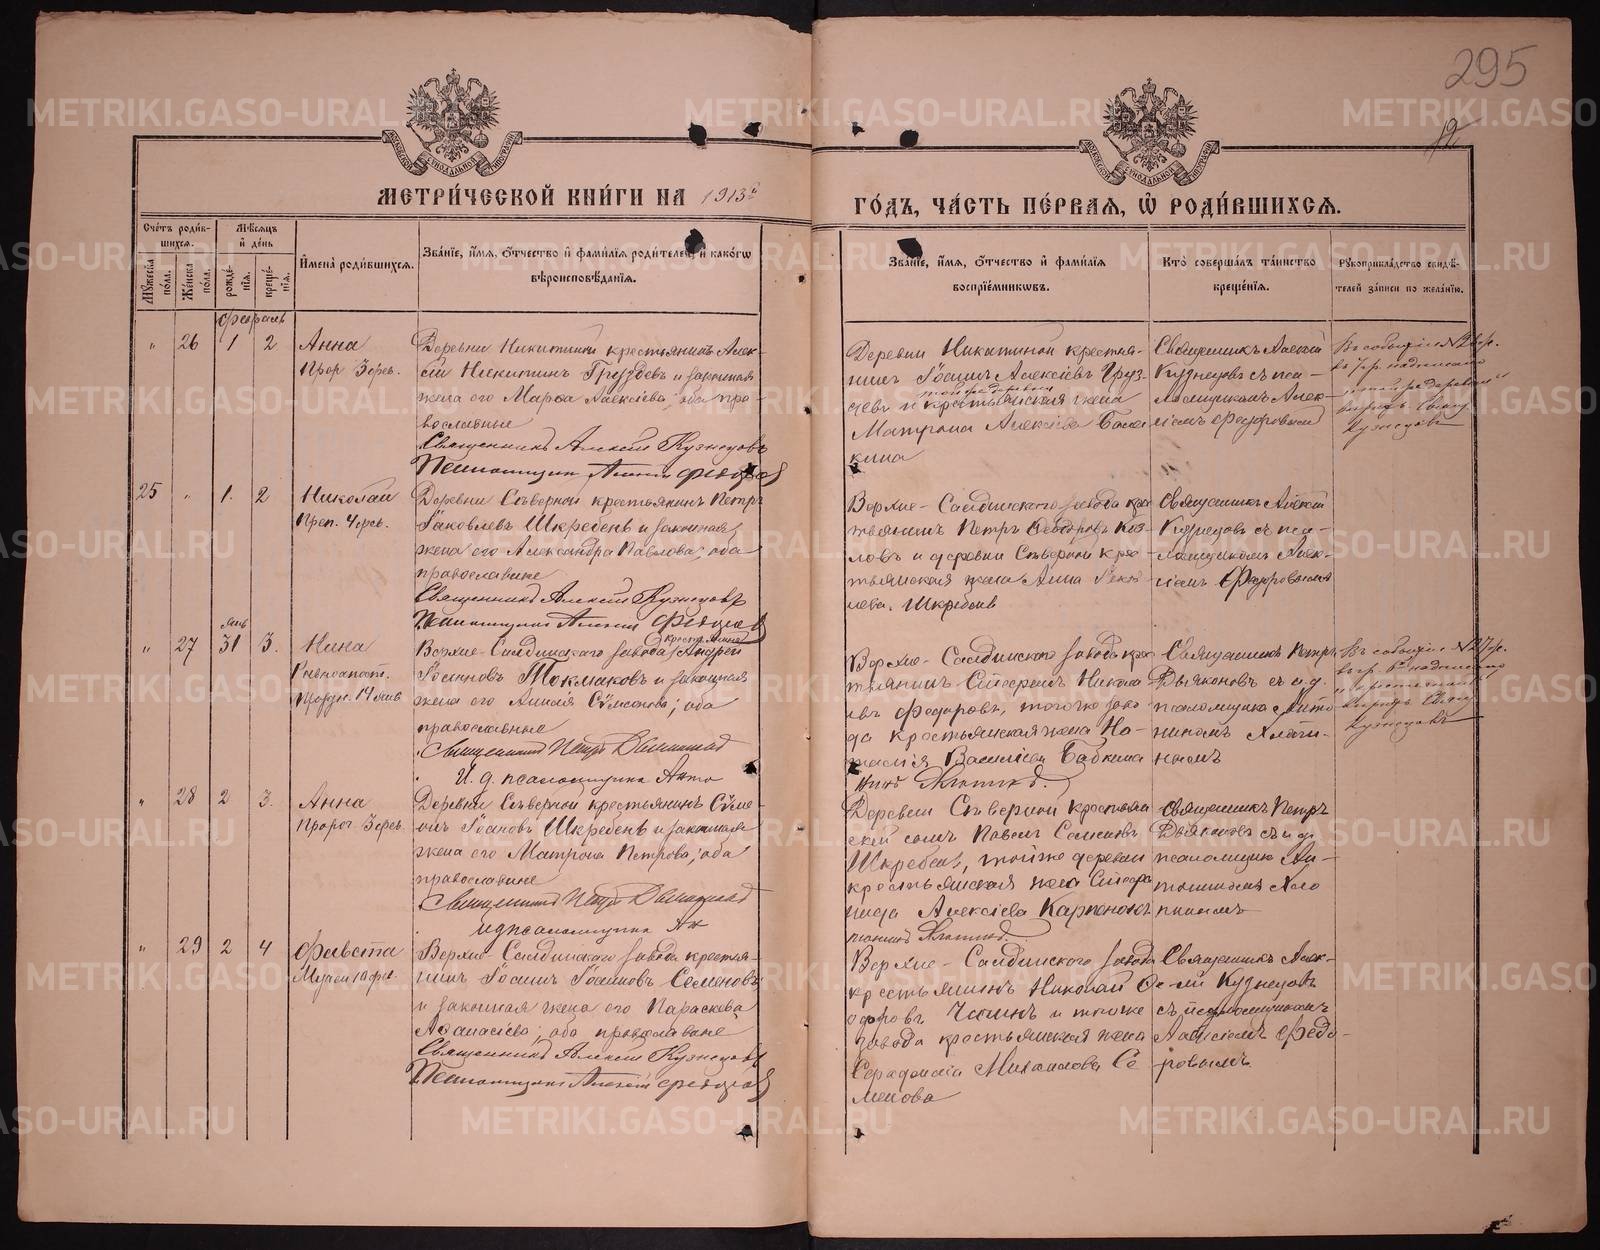 295
12
МОСКОВСКОЙ СѴНОДАЛЬНОЙ ТИПОГРАФІИ
МОСКОВСКОЙ СѴНОДАЛЬНОЙ ТИПОГРАФІИ
МЕТРИ́ЧЕСКОЙ КНИ́ГИ НА 1913 г
ГО́ДЪ, ЧА́СТЬ ПЕ́РВАЯ, Ѽ РОДИ́ВШИХСЯ.
Сче́тъ роди́вшихся.
Му́жеска по́ла.
Же́нска по́ла.
Мѣ́сяцъ и́ де́нь
рожде́нія.
креще́нія.
И҆мена̀ роди́вшихся.
Зва́ніе, и҆́мя, о҆́тчество и҆ фами́лія роди́телей, и҆ како́гѡ
вѣроисповѣ́данія.
Зва́ніе, и҆́мя, о҆́тчество и҆ фами́лія
воспріе́мникѡвъ.
Кто̀ соверша́лъ та́инство
креще́нія.
Рукоприкла́дство свидѣ́-
телей за́писи по жела́нію.
Февраль
" 26 1 2
Анна
Прор 3 фев.
Деревни Никитиной крестьянинъ Алек-
сій Никитинъ Груздевъ и законная
жена его Марфа Алексіева; оба пра-
вославные
Священникъ Алексій Кузнецовъ
Псаломщикъ Алексій Федоровъ
Деревни Никитиной крестья-
нинъ Іоаннъ Алексіевъ Груз-
девъ и той же деревни крестьянская жена
Матрона Алексіева Бала
кина
Священникъ Алексій
Кузнецовъ съ пса-
ломщикомъ Алек-
сіемъ Федоровымъ
25 " 1. 2
Николай
Преп. 4 фев.
Деревни Сѣверной крестьянинъ Петръ
Іаковлевъ Шкребень и законная
жена его Александра Павлова; оба
православные
Священникъ Алексій Кузнецовъ
Псаломщикъ Алексій Федоровъ
Верхне-Салдинскаго завода кре
стьянинъ Петръ Феодоровъ Коз-
ловъ и деревни Сѣверной крес
тьянская жена Анна
Шкребень
Священникъ Алексій
Кузнецовъ съ пса-
ломщикомъ Алек-
сіемъ Федоровымъ
" 27 янв 31 3.
Нина
Равноапост.
14 янв
Верхне-Салдинскаго завода крестьянинъ Андрей
Іоанновъ Токмаковъ и законная
жена его Анисія Сѵмеонова; оба
православные
Священникъ Петръ Дьяконовъ
И. д. псаломщика Анто
Верхне-Салдинскаго завода крес
тьянинъ Стефанъ Никола
евъ Федоровъ, того же заво
да крестьянская жена На-
талія Василіева Бабкина
нинъ Хлопинъ.
Священникъ Петръ
Дьяконовъ съ и. д.
псаломщика Анто
ниномъ Хлопи-
нымъ
" 28 2 3.
Анна
Пророч. 3 фев.
Деревни Сѣверной крестьянинъ Сѵме-
онъ Іоанновъ Шкребень и законная
жена его Матрона Петрова; оба
православные
Священникъ Петръ Дьяконовъ
И д псаломщика Ан
Деревни Сѣверной крестьян
скій сынъ Павелъ Семеновъ
Шкребень, той же деревни
крестьянская жена Стефа
нида Алексіева Карпенокъ
тонинъ Хлопинъ.
Священникъ Петръ
Дьяконовъ съ и д.
псаломщика Ан-
тониномъ Хло
пинымъ
" 29 2 4
Фавста
Мучен 10 фев.
Верхне-Салдинскаго завода крестья-
нинъ Іоаннъ Іоанновъ Семеновъ
и законная жена его Параскева
Афанасіева; оба православные
Священникъ Алексій Кузнецовъ
Псаломщикъ Алексій Федоровъ
Верхне-Салдинскаго завода
крестьянинъ Николай Фе-
одоровъ и того же
завода крестьянская жена
Серафима Михаилова Се
менова
Священникъ Алек-
сій Кузнецовъ
съ псаломщикомъ
Алексіемъ Федо-
ровымъ
METRIKI.GASO-URAL.RU